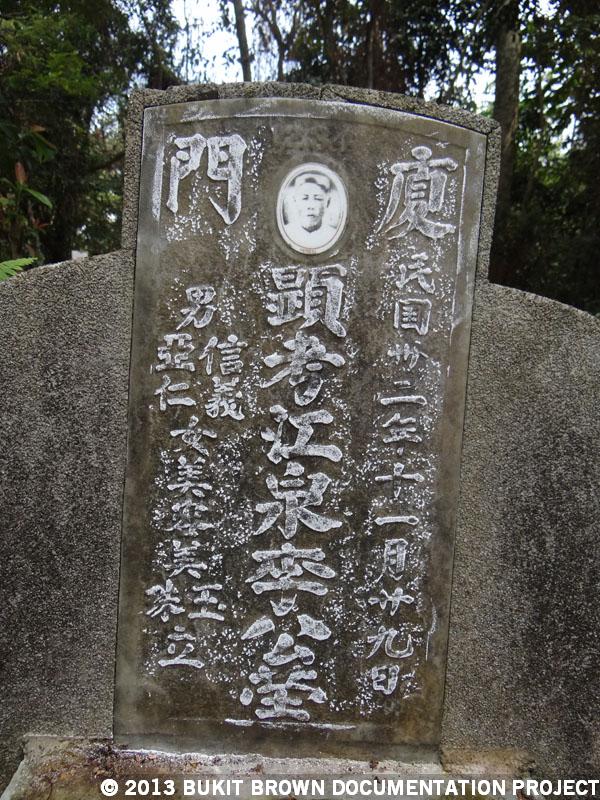 廈門
民国卅二年十一月廿九日
顯考江泉李公塋
男信義亞仁女美美玉立
© 2013 BUKIT BROWN DOCUMENTATION PROJECT